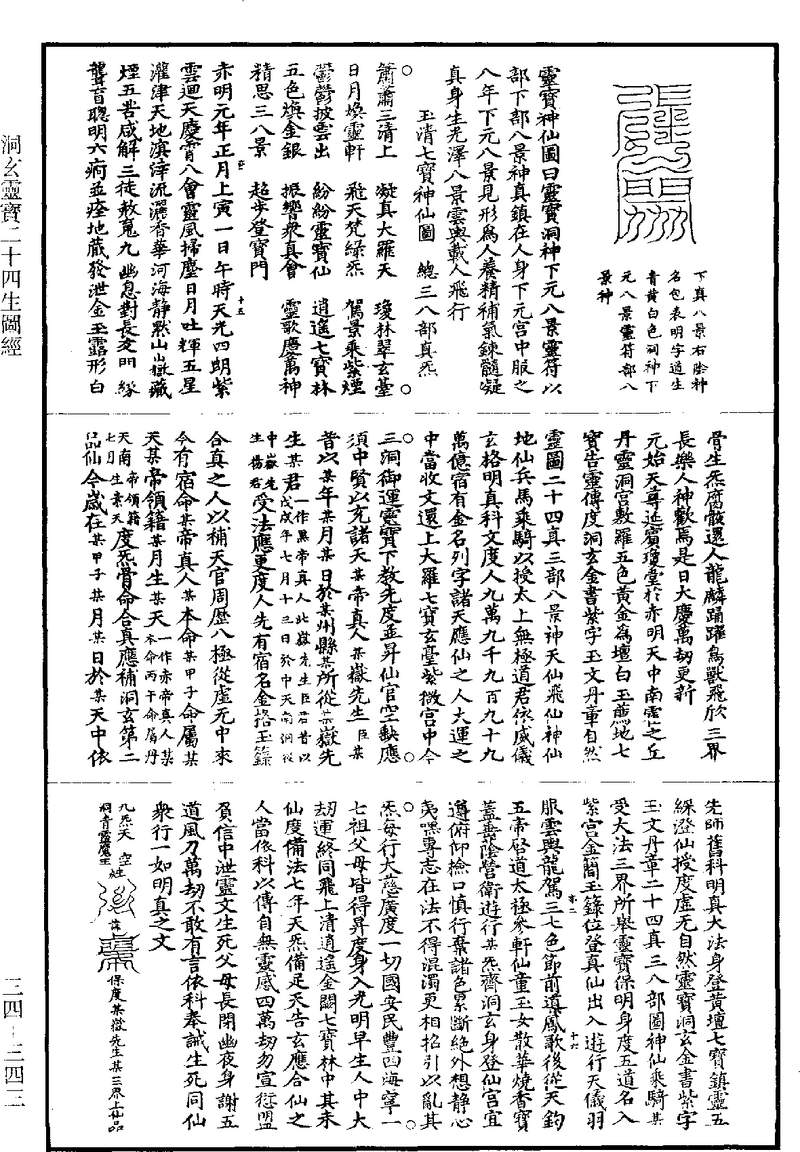 洞玄靈寶二十四生圖經
三四—三四二
下真八景右陰神
名包表明字道生
青黄白色祠神下
元八景靈符部八
景神
靈寶神仙圖曰靈寶洞神下元八景靈符以
部下部八景神真鎮在人身下元宫中服之
八年下元八景見形為人養精補氣鍊髓凝
真身生光澤八景雲輿載人飛行
玉清七寶神仙圖 總三八部真炁
簫簫三清上 凝真大羅天 瓊林翠玄臺
日月煥靈軒 飛天梵緑炁 駕景乘紫煙
鬱鬱披雲出 紛紛靈寶仙 逍遥七寶林
五色煥金銀 振響衆真會 靈歌慶萬神
精思三八景 超步登寶門
赤明元年正月上寅一日午時天光四朗紫
雲迴天慶霄八會靈風掃塵日月吐輝五星
灌津天地溟涬流灑香華河海静默山嶽藏
煙五苦咸解三徒赦魂九幽息對長夜門緣
聾盲聰明六病並痊地藏發泄金玉露形白
骨生炁腐骸還人龍麟踊躍鳥獸飛欣三界
長樂人神歡焉是日大慶萬劫更新
元始天尊延賓瓊堂於赤明天中南霍之丘
丹靈洞宫敷羅五色黄金為壇白玉薦地七
寶告靈傳度洞玄金書紫字玉文丹章自然
靈圖二十四真三部八景神天仙飛仙神仙
地仙兵馬乘騎以授太上無極道君依威儀
玄格明真科文度人九萬九千九百九十九
萬億宿有金名列字諸天應仙之人大運之
中當收文還上大羅七寶玄臺紫微宫中今
三洞御運靈寶下教先度並昇仙官空缺應
須中賢以充諸天某帝真人某嶽先生臣某
昔以某年某月某日於某州縣某所從某嶽先
生某君一作黑帝真人此嶽先生臣君昔以戊戌年七月十三日於中天南洞從中嶽先生楊君受法應更度人先有宿名金格玉籙
合真之人以補天官周歷八極從虚无中來
今有宿命某帝真人某本命某甲子命屬某
天某帝領籍某月生某天一作赤帝真人某本命丙午命屬丹天南帝領籍七月生素天度炁骨命合真應補洞玄第二
品仙今歲在某甲子某月某日於某天中依
先師舊科明真大法身登黄壇七寶鎮靈五
綵澄仙授度虚无自然靈寶洞玄金書紫字
玉文丹章二十四真三八部圖神仙乘騎某
受大法三界所舉靈寶保明身度五道名入
紫宫金簡玉籙位登真仙出入遊行天儀羽
服雲輿龍駕三七色節前導鳳歌後從天鈞
五帝啓道太極參軒仙童玉女散華燒香寶
蓋垂蔭營衛遊行某炁齊洞玄身登仙宫宜
遵俯仰檢口慎行棄諸色累斷絶外想静心
夷嘿專志在法不得混濁更相招引以亂其
炁每行大慈廣度一切國安民豐四海寧一
七祖父母皆得昇度身入光明早生人中大
劫運終同飛上清逍遥金闕七寶林中其未
仙度備法七年天炁備足天告玄應合仙之
人當依科以傳自無靈感四萬劫勿宣衍盟
負信中泄靈文生死父母長閉幽夜身謝五
道風刀萬劫不敢有言依科奉誠生死同仙
衆行一如明真之文
九炁天 空姓
洞青靈魔王 諱
保度某嶽先生某三界上仙品